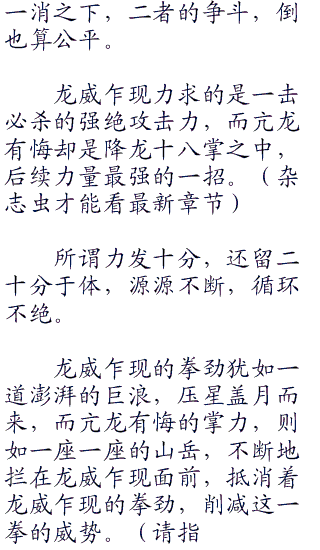 一消之下，二者的争斗，倒
也算公平。
龙威乍现力求的是一击
必杀的强绝攻击力，而亢龙
有悔却是降龙十八掌之中，
后续力量最强的一招。（杂
志虫才能看最新章节）
所谓力发十分，还留二
十分于体，源源不断，循环
不绝。
龙威乍现的拳劲犹如一
道澎湃的巨浪，压星盖月而
来，而亢龙有悔的掌力，则
如一座一座的山岳，不断地
拦在龙威乍现面前，抵消着
龙威乍现的拳劲，削减这一
拳的威势。（请指